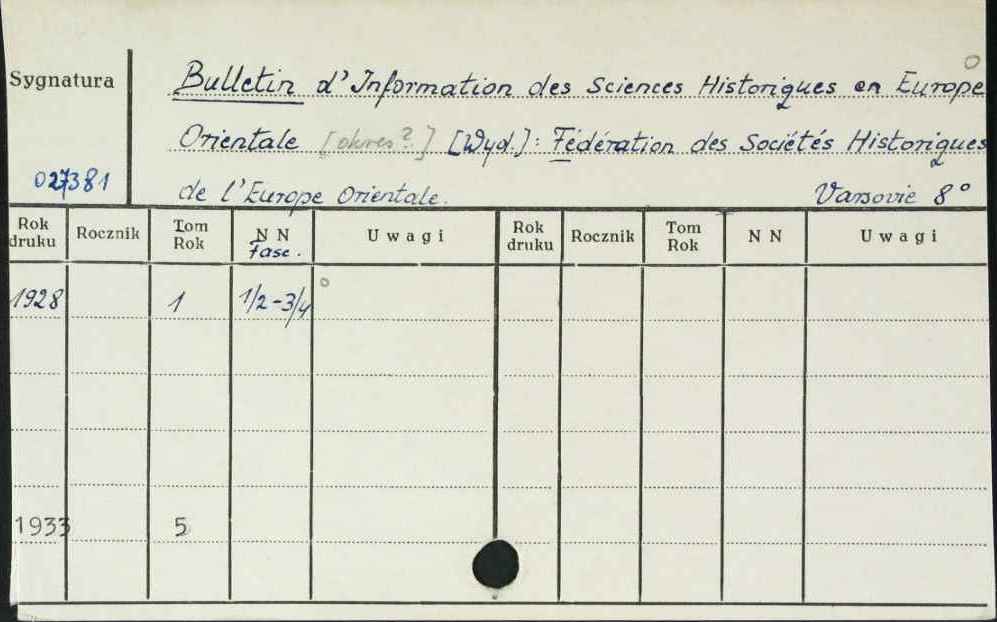 Sygnatura
Bulletin d'Information des Sciences Historiques en Europe
Orientale [okres?] [Wyd.]: Fédération des Sociétés Historiques
027381
de l'Europe Orientale. Varsovie 8°
Rok druku Rocznik Tom Rok N N Fasc. Uwagi Rok druku Rocznik Tom Rok N N Uwagi
1928 1 1/2-3/4
1933 5